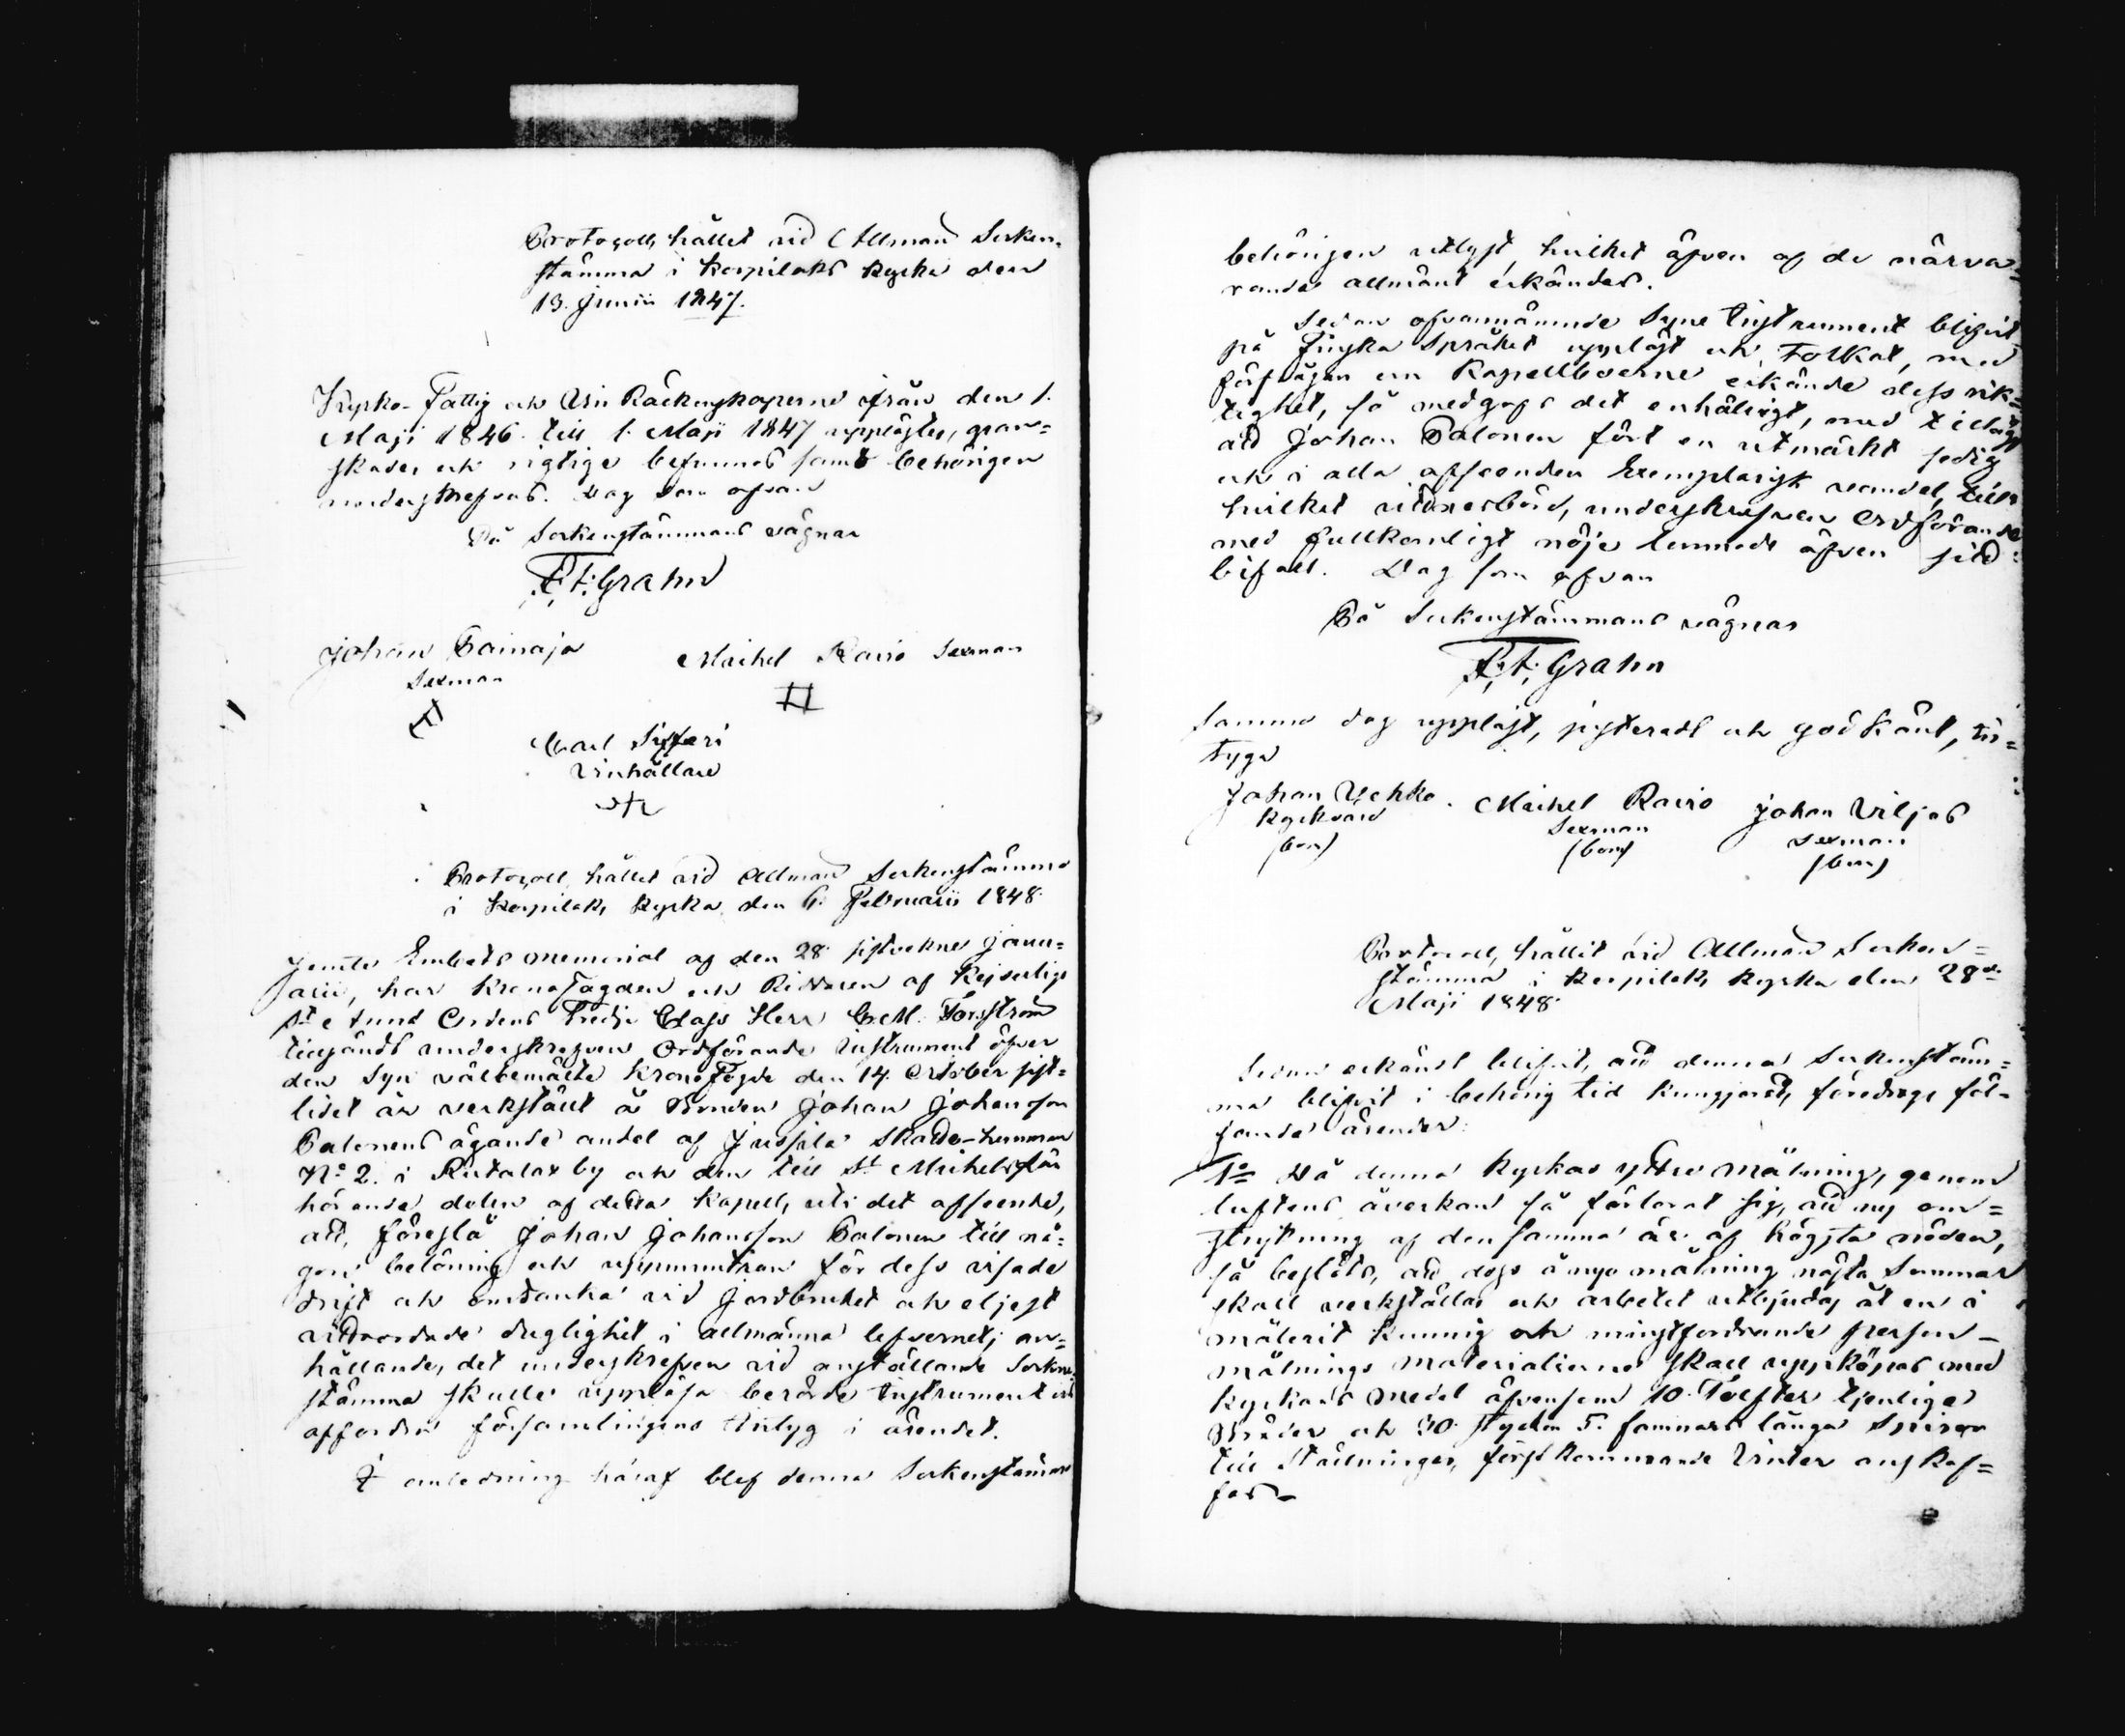 Protocoll, hållet vid Allmän Socken-
stämma i Korpilaks Kyrka den
13. Junii 1847.
Kyrko- Fattig och Vin Räkenskaperne ifrån den 1.
Maji 1846. till 1. Maji 1847 upplästes, gran=
skades och rigtige befunnos samt behörigen
underskrefvos. Dag som ofvan
På Sockenstämmans vägnar
Grahn
Johan Painaja
Sexman
Michel Raviο Sexman
Carl
Vinhållare
Protocoll, hållet vid Allmän Sockenstämma
i Korpilaks Kyrka den 6. Februarii 1848.
Jemte Embets Memorial af den 28. sistvekne Janu=
arii, har Kronofogden och Riddaren af Kejserlige
St. Annæ Ordens Tredje Class Herr C.M. Forsström
tillsändt underskrefven Ordförande Instrument öfver
den Syn välbemälte Kronofogde den 14. October sist=
lidet år verkstält å Bonden Johan Johansson
Palonens ägande andel af Jussila Skatte-hemman
No 2. i Rutalax by och den till St Michels län
hörande delen af detta Kapell, uti det afseende,
att, föreslå Johan Johansson Palonen till nå=
gon belöning och uppmuntran för dess visade
drift och omtanka vid Jordbruket och eljest
ådagalagde duglighet i allmänna lefvernet; an=
hållande, det underskrefven vid anställande Socken
stämma skulle uppläsa berörde Instrument och
affordra församlingens intyg i ärendet.
I anledning häraf blef denna Sockenstämma
behörigen utlyst, hvilket äfven af de närva=
rande allmänt erkändes.
Sedan ofvannämnde Syne Instrument blifvit
på Finska Språket uppläst och Tolkat, med
förfrågan om Kapellboerne erkände dess rik=
tighet, så medgafs det enhälligt, med tillägg
att Johan Palonen fört en utmärkt sedig
och i alla afseenden Exemplarisk vandel, till
hvilket vittnesbörd, underskrefven Ordförande
med fullkomligt nöje lemnade äfven sitt
bifall. Dag som ofvan
På Sockenstämmans vägnar
Grahn
Samma dag uppläst, justeradt och godkänt,
tyga
Johan Vehko
Kyrkvärd
(bom)
Michel Ravio
Sexman
(bom)
Johan Viljas
Sexman
(bom)
Protocoll, hållit vid Allmän Socken=
stämma i Korpilaks Kyrka den 28de
Maji 1848.
Sedan erkänt blifvit, att denna Sockenstäm=
ma blifvit i behörig tid kungjord, föredrogs föl=
jande ärender:
1o Då denna Kyrkas yttre Målning, genom
luftens åverkan så förlorat sig, att ny om=
strykning af densamma är af högsta nöden,
så beslöts, att dess å nyo målning nästa Sommar
skall verkställas och arbetet utbjudas åt en i
måleriet kunnig och minstfordrande person -
målnings Materialierne skall uppköpas med
Kyrkans Medel äfvensom 10. Tolfter tjenlige
Bräder och 30. stycken 5. famnars långa Sparrar
till Ställningar, först kommande Vinter anskaf=
fas -